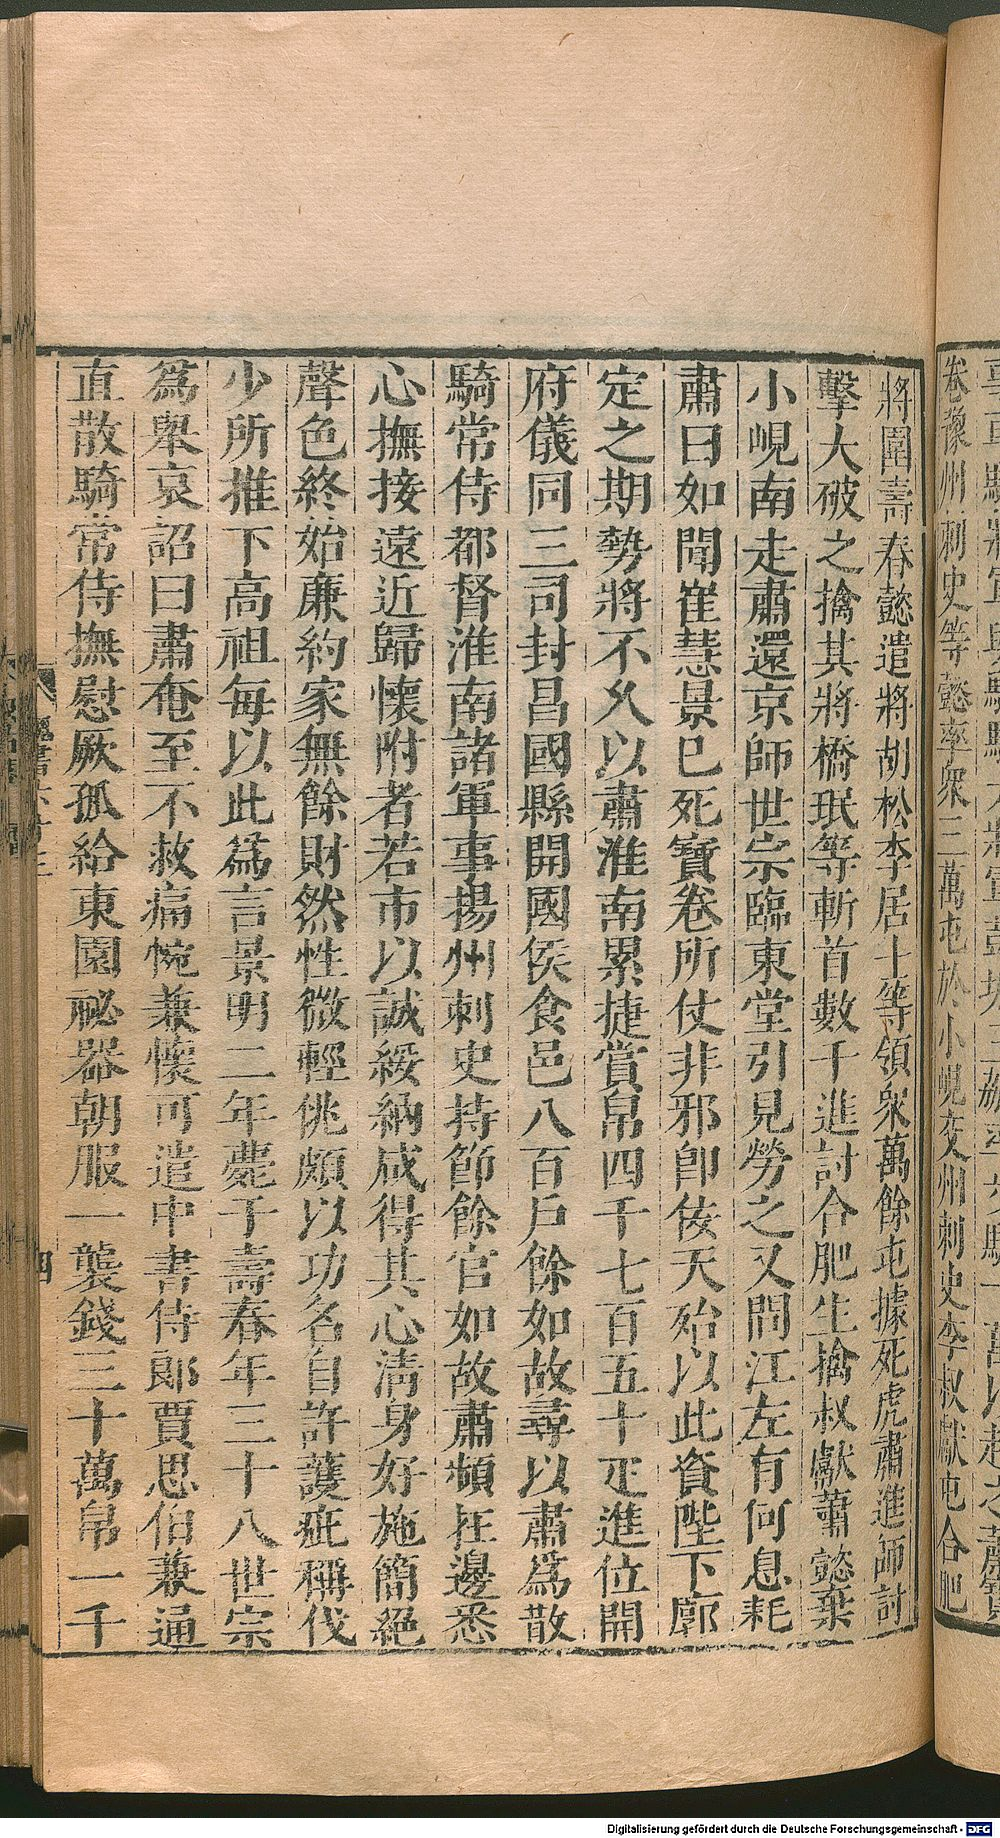 卷豫州刺史等懿率衆三萬屯於小峴交州刺史李叔獻屯合肥
將圍壽春懿遣將胡松李居士等領衆萬餘屯據死虎肅進師討
擊大破之擒其將橋珉等斬首數千進討合肥生擒叔獻蕭懿棄
小峴南走肅還京師世宗臨東堂引見勞之又問江左有何息耗
肅曰如聞崔慧景已死寶卷所仗非邪卽佞天殆以此資陛下廓
定之期勢將不久以肅淮南累捷賞帛四千七百五十疋進位開
府儀同三司封昌國縣開國侯食邑八百戶餘如故尋以肅爲散
騎常侍都督淮南諸軍事揚州刺史持節餘官如故肅頻在邊悉
心撫接遠近歸懷附者若市以誠綏納咸得其心淸身好施簡絕
聲色終始廉約家無餘財然性微輕佻頗以功名自許護疵稱伐
少所推下高祖每以此爲言景明二年薨于壽春年三十八世宗
爲舉哀詔曰肅奄至不救痛惋兼懷可遣中書侍郞賈思伯兼通
直散騎常侍撫慰厥孤給東園祕器朝服一襲錢三十萬帛一千
四
Digitalisierung gefördert durch die Deutsche Forschungsgemeinschaft - DFG